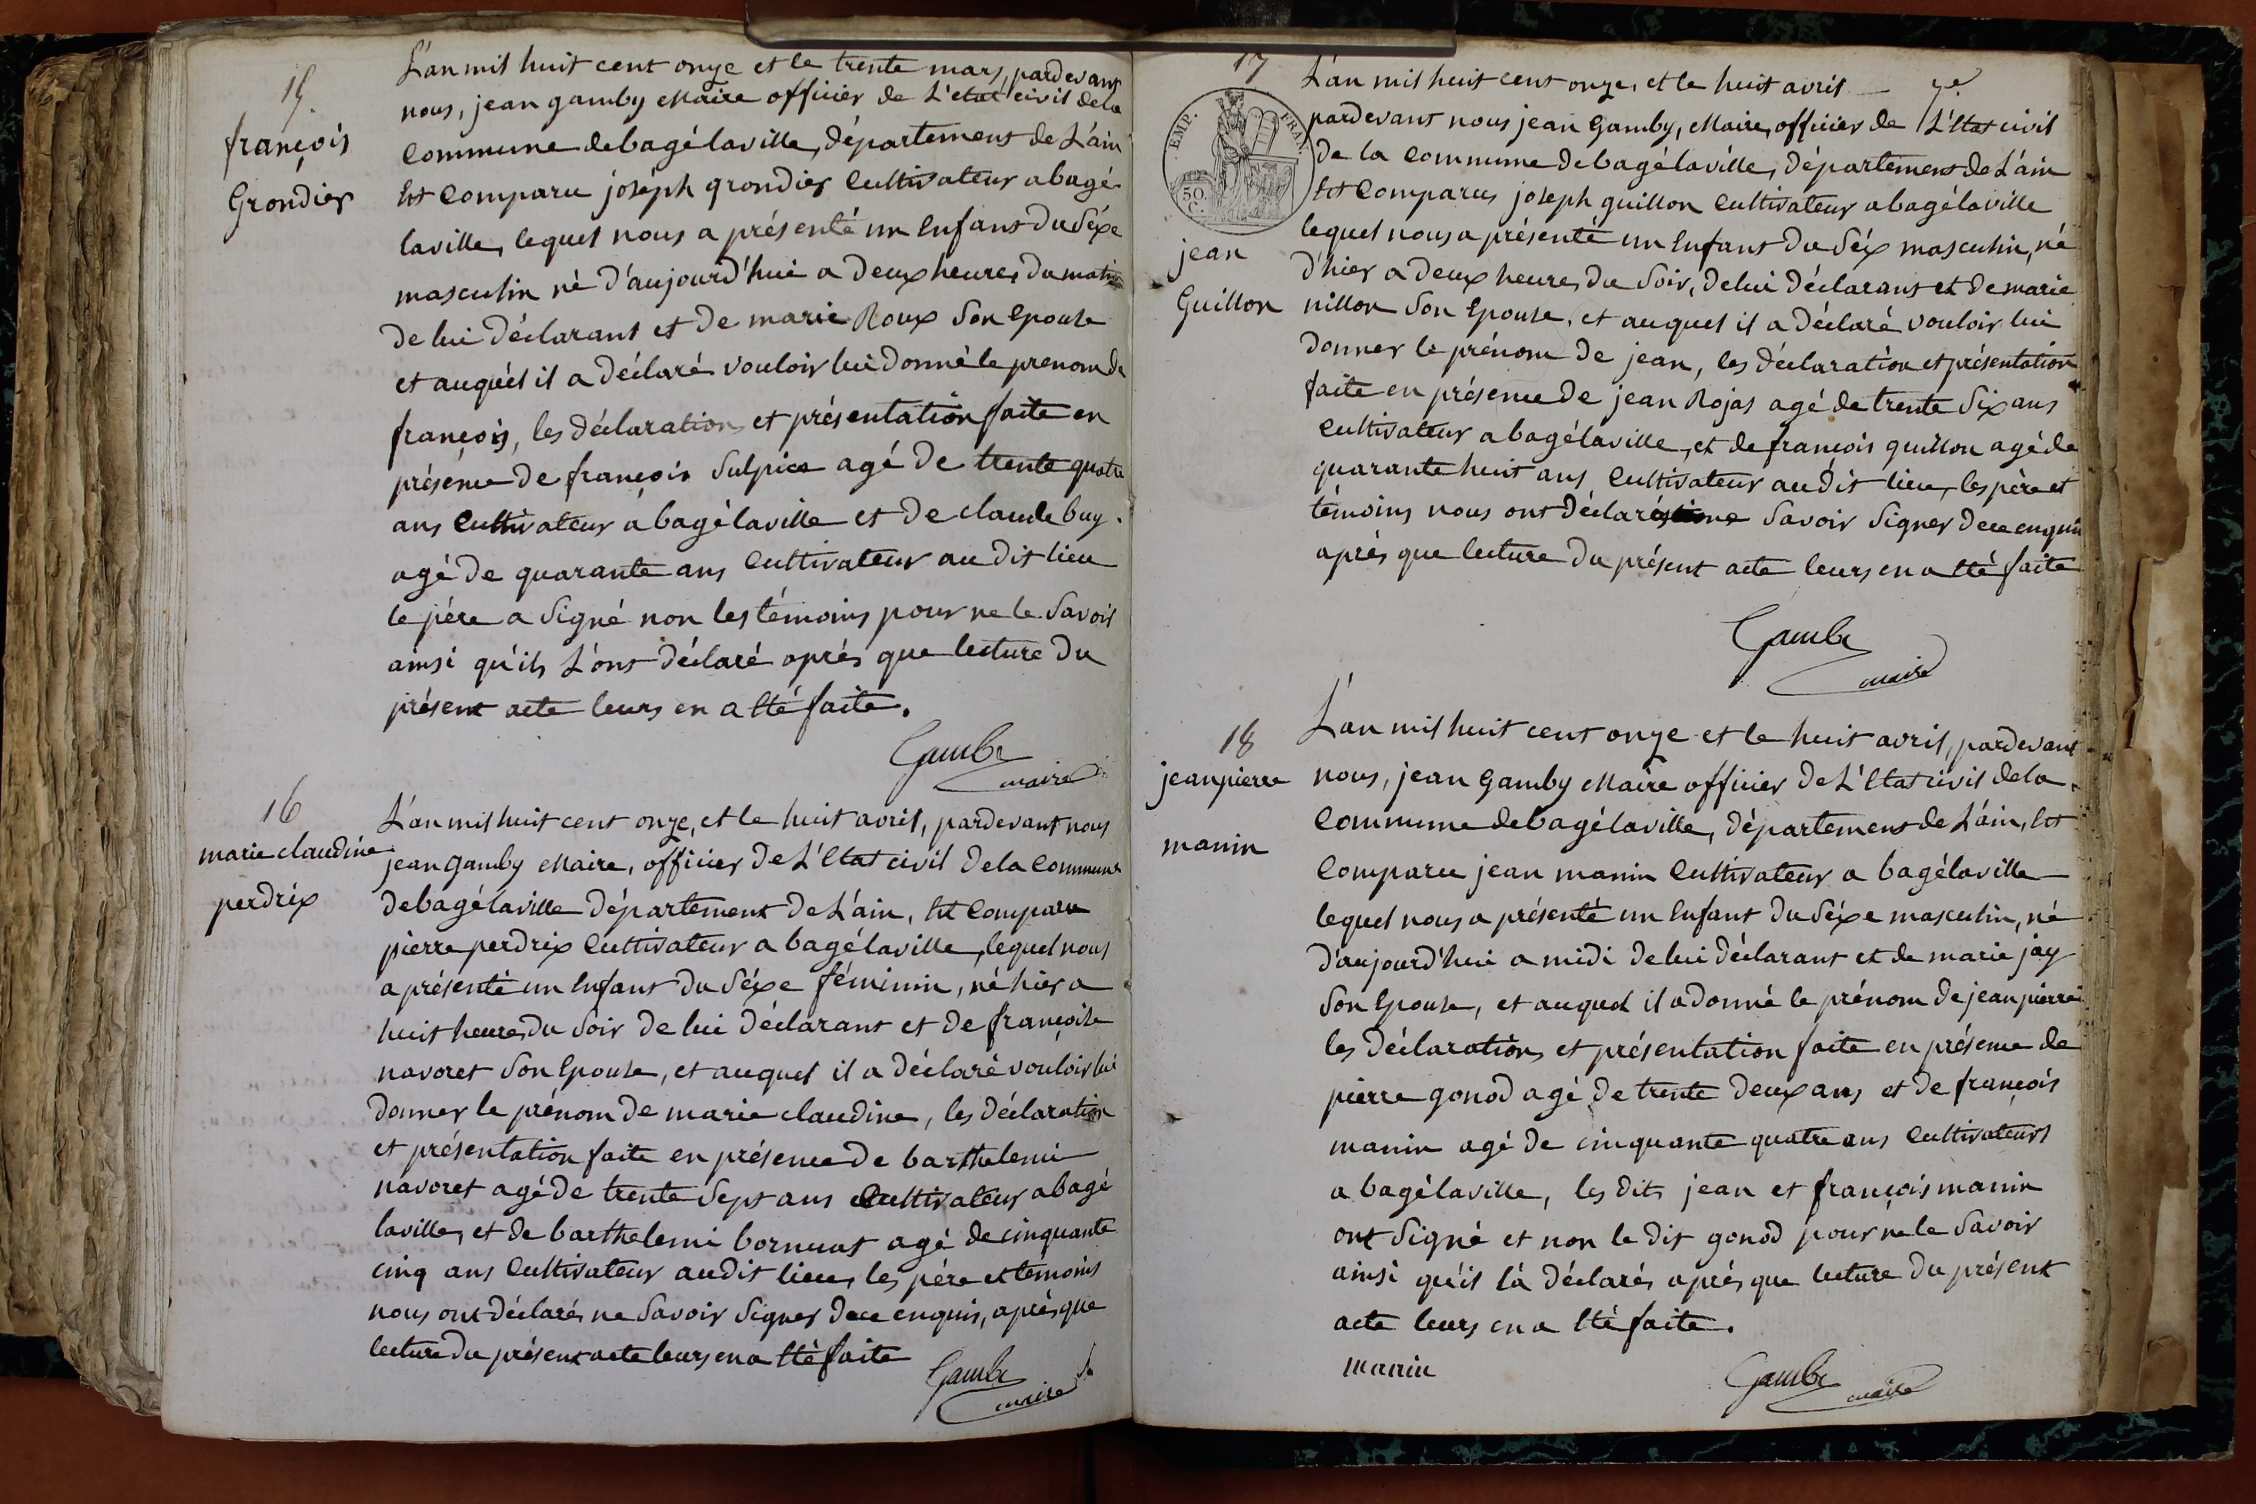 15.
françois
Grondier
L'an mil huit cent onze et le trente mars, pardevant
nous, jean gamby Maire officier de L'etat civil de la
Commune de bagé laville, département de L'ain
Est Comparu joséph grondier Cultivateur a bagé
laville, lequel nous a présenté un Enfant du Séxe
masculin né d'aujourd'hui a deux heures du matin
de lui déclarant et de marie Roux Son Epouse
et auquél il a déclaré vouloir lui donné le prenom de
françois, les déclarations et présentation faite en
présence de françois Sulpice agé de trente quatre
ans Cultivateur a bagé laville et de claude buy
agé de quarante ans Cultivateur au dit lieu
le pére a Signé non les témoins pour ne le Savoir
ainsi qu'ils L'ont déclaré aprés que lecture du
présent acte leurs en a Eté faite.
Gambi
maire
16
marie claudine
perdrix
L'an mil huit cent onze, et le huit avril, pardevant nous
jean gamby Maire, officier de L'Etat civil de la Commune
de bagé laville département de L'ain, Est Comparu
pierre perdrix Cultivateur a bagé laville, lequel nous
a présenté un Enfant du Séxe féminin, né hier a
huit heures du Soir de lui déclarant et de françoise
navoret Son Epouse, et auquel il a déclaré vouloir lui
donner le prénom de marie claudine, les déclaration
et présentation faite en présence de barthelemi
navoret agé de trente Sept ans Cultivateur a bagé
laville, et de barthelemi bornuat agé de cinquante
cinq ans Cultivateur audit lieu, les pére et temoins
nous ont déclarés ne Savoir Signer de ce enquis, aprés que
lecture du présent acte leurs en a Eté faite
Gambi
maire
17
7e.
EMP. FRA.
50.
C.
jean
Guillon
L'an mil huit cent onze, et le huit avril
pardevant nous jean Gamby, Maire, officier de L'Etat civil
de la Commune de bagé laville, département de L'ain
Est Comparus joseph guillon Cultivateur a bagé laville
lequel nous a présenté un Enfant du Séx masculin, né
d'hier a deux heures du Soir, de lui déclarant et de marie
nillon Son Epouse, et auquel il a déclaré vouloir lui
donner le prénom de jean, les déclaration et présentation
faite en présence de jean Rojas agé de trente Six ans
Cultivateur a bagé laville, et de françois guillon agé de
quarante huit ans Cultivateur au dit lieu, les pére et
témoins nous ont déclarés Savoir Signer de ce enquis
aprés que lecture du présent acte leurs en a Eté faite
Gambi
maire
18
jean pierre
manin
L'an mil huit cent onze et le huit avril, pardevant
nous, jean Gamby Maire officier de L'Etat civil de la
Commune de bagé laville, département de L'ain, Est
Comparu jean manin Cultivateur a bagé laville
lequel nous a présenté un Enfant du Séxe masculin, né
d'aujourd'hui a midi de lui déclarant et de marie jay
Son Epouse, et auquel il a donné le prénom de jean pierre
les déclarations et présentation faite en présence de
pierre gonod agé de trente deux ans et de françois
manin agé de cinquante quatre ans Cultivateurs
a bagé laville, les dits jean et françois manin
ont Signé et non le dit gonod pour ne le Savoir
ainsi qu'il l'a déclarés aprés que lecture du présent
acte leurs en a Eté faite.
manin
Gambi
maire